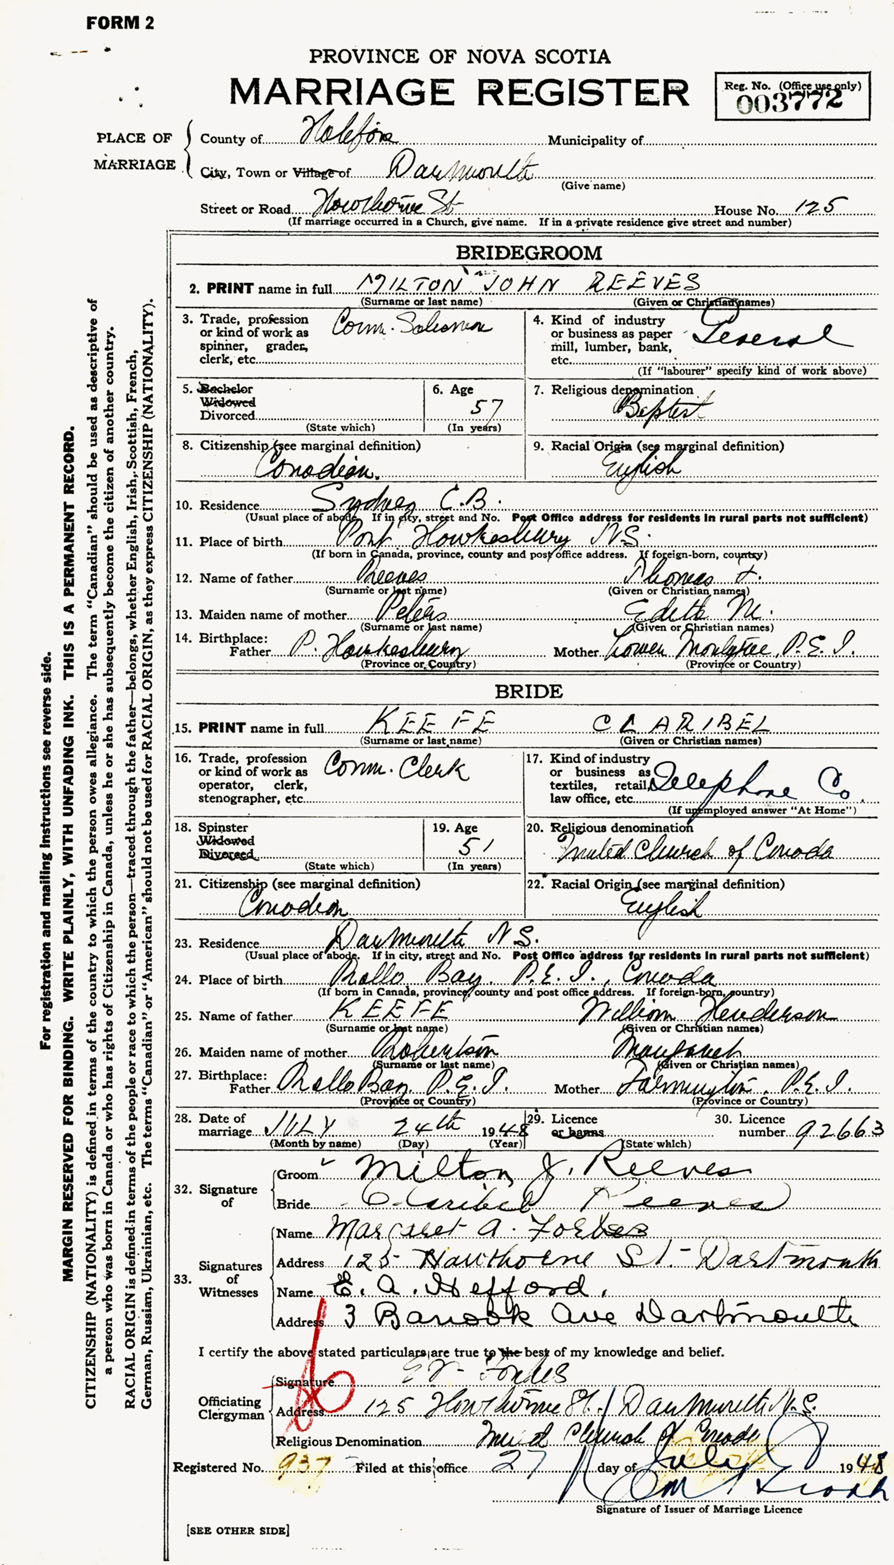 FORM 2
PROVINCE OF NOVA SCOTIA
MARRIAGE REGISTER
Reg. No. (Office use only)
003772
PLACE OF MARRIAGE
County of Halifax Municipality of
City, Town or Village of Dartmouth
(Give name)
Street or Road Hawthorne St House No. 125
(If marriage occurred in a Church, give name. If in a private residence give street and number)
BRIDEGROOM
2. PRINT name in full MILTON JOHN REEVES
(Surname or last name) (Given or Christian names)
3. Trade, profession or kind of work as spinner, grader, clerk, etc. Comm. Salesman
4. Kind of industry or business as paper mill, lumber, bank, etc. General
(If "labourer" specify kind of work above)
5. Bachelor Widowed Divorced
(State which)
6. Age 57
(In years)
7. Religious denomination Baptist
8. Citizenship (see marginal definition) Canadian.
9. Racial Origin (see marginal definition) English
10. Residence Sydney C.B.
(Usual place of abode. If in city, street and No. Post Office address for residents in rural parts not sufficient)
11. Place of birth Port Hawkesbury N.S.
(If born in Canada, province, county and post office address. If foreign-born, country)
12. Name of father Reeves Thomas
(Surname or last name) (Given or Christian names)
13. Maiden name of mother Peters Edith M.
(Surname or last name) (Given or Christian names)
14. Birthplace: Father P. Hawkesbury Mother Lower Montague, P.E.I.
(Province or Country) (Province or Country)
BRIDE
15. PRINT name in full KEEFE CLARIBEL
(Surname or last name) (Given or Christian names)
16. Trade, profession or kind of work as operator, clerk, stenographer, etc. Comm. Clerk
17. Kind of industry or business as textiles, retail, law office, etc. Telephone Co.
(If unemployed answer "At Home")
18. Spinster Widowed Divorced
(State which)
19. Age 51
(In years)
20. Religious denomination United Church of Canada
21. Citizenship (see marginal definition) Canadian
22. Racial Origin (see marginal definition) English
23. Residence Dartmouth N.S.
(Usual place of abode. If in city, street and No. Post Office address for residents in rural parts not sufficient)
24. Place of birth Rollo Bay, P.E.I., Canada
(If born in Canada, province, county and post office address. If foreign-born, country)
25. Name of father KEEFE William Henderson
(Surname or last name) (Given or Christian names)
26. Maiden name of mother Robertson Margaret
(Surname or last name) (Given or Christian names)
27. Birthplace: Father Rollo Bay, P.E.I. Mother Farmington, P.E.I.
(Province or Country) (Province or Country)
28. Date of marriage JULY 24th 1948
(Month by name) (Day) (Year)
29. Licence or banns
(State which)
30. Licence number 92663
32. Signature of
Groom Milton J. Reeves
Bride Claribel Reeves
33. Signatures of Witnesses
Name Margaret A. Forbes
Address 125 Hawthorne St. Dartmouth
Name E. A. Hefford.
Address 3 Banook Ave Dartmouth
I certify the above stated particulars are true to the best of my knowledge and belief.
Officiating Clergyman
Signature Forbes
Address 125 Hawthorne St. Dartmouth N.S.
Religious Denomination United Church of Canada
Registered No. 937 Filed at this office 27 day of July 1948
Signature of Issuer of Marriage Licence
[SEE OTHER SIDE]
For registration and mailing instructions see reverse side.
MARGIN RESERVED FOR BINDING. WRITE PLAINLY, WITH UNFADING INK. THIS IS A PERMANENT RECORD.
CITIZENSHIP (NATIONALITY) is defined in terms of the country to which the person owes allegiance. The term "Canadian" should be used as descriptive of
a person who was born in Canada or who has rights of Citizenship in Canada, unless he or she has subsequently become the citizen of another country.
RACIAL ORIGIN is defined in terms of the people or race to which the person—traced through the father—belongs, whether English, Irish, Scottish, French,
German, Russian, Ukrainian, etc. The terms "Canadian" or "American" should not be used for RACIAL ORIGIN, as they express CITIZENSHIP (NATIONALITY).